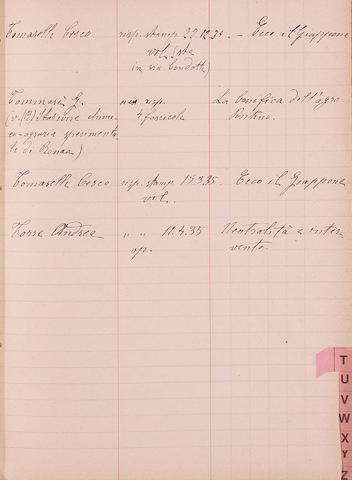 Tomaselli Cesco risp. stamp. 27.12.34. – Ecco il Giappone
vol. (sta
in via Condotti)
Tommasi G. risp. La bonifica dell'agro
4 fascicoli Pontino.
co-agraria sperimenta-
le di Roma)
Tomaselli Cesco risp. stamp. 15.3.35. Ecco il Giappone
vol.
Torre Andrea „ „ 11.4.35 Neutralità e inter-
op. vento.
T
U
V
W
X
Y
Z